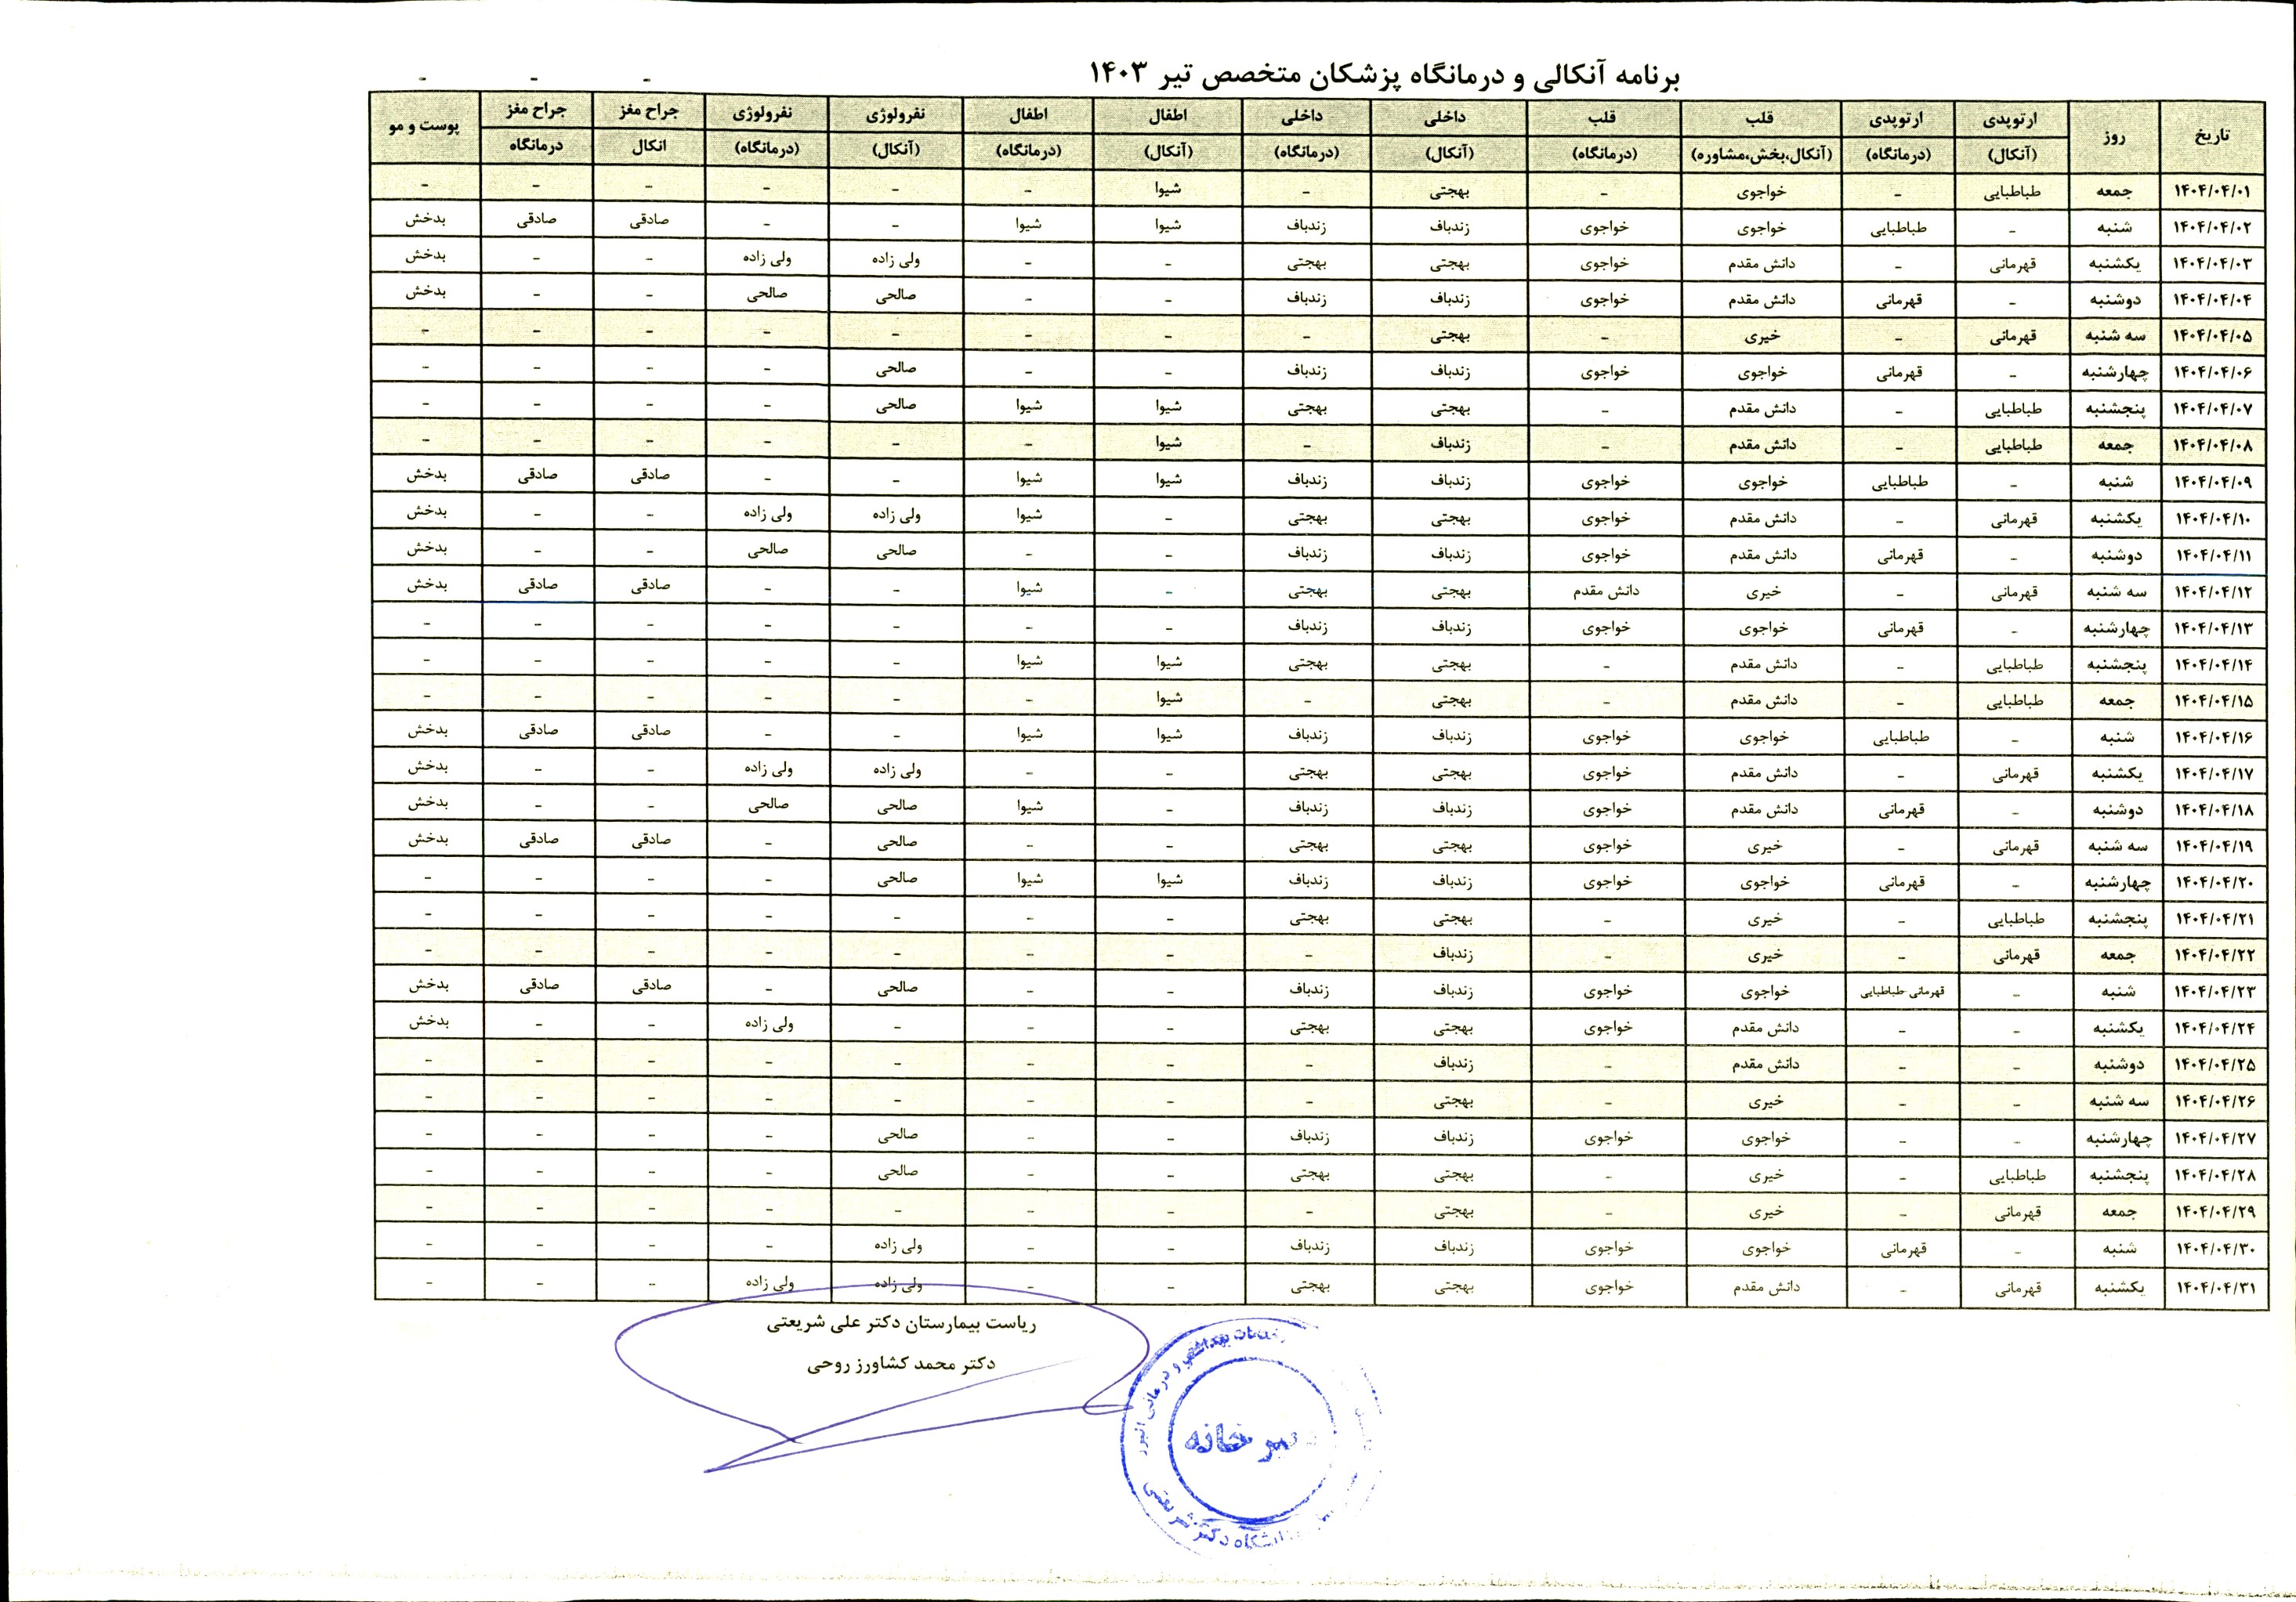 برنامه آنکالی و درمانگاه پزشکان متخصص تیر ۱۴۰۳
- - -
تاریخ روز ارتوپدی ارتوپدی قلب قلب داخلی داخلی اطفال اطفال نفرولوژی نفرولوژی جراح مغز جراح مغز پوست و مو
(آنکال) (درمانگاه) (آنکال،بخش،مشاوره) (درمانگاه) (آنکال) (درمانگاه) (آنکال) (درمانگاه) (آنکال) (درمانگاه) انکال درمانگاه
۱۴۰۴/۰۴/۰۱ جمعه طباطبایی - خواجوی - بهجتی - شیوا - - - - - -
۱۴۰۴/۰۴/۰۲ شنبه - طباطبایی خواجوی خواجوی زندباف زندباف شیوا شیوا - - صادقی صادقی بدخش
۱۴۰۴/۰۴/۰۳ یکشنبه قهرمانی - دانش مقدم خواجوی بهجتی بهجتی - - ولی زاده ولی زاده - - بدخش
۱۴۰۴/۰۴/۰۴ دوشنبه - قهرمانی دانش مقدم خواجوی زندباف زندباف - - صالحی صالحی - - بدخش
۱۴۰۴/۰۴/۰۵ سه شنبه قهرمانی - خیری - بهجتی - - - - - - - -
۱۴۰۴/۰۴/۰۶ چهارشنبه - قهرمانی خواجوی خواجوی زندباف زندباف - - صالحی - - - -
۱۴۰۴/۰۴/۰۷ پنجشنبه طباطبایی - دانش مقدم - بهجتی بهجتی شیوا شیوا صالحی - - - -
۱۴۰۴/۰۴/۰۸ جمعه طباطبایی - دانش مقدم - زندباف - شیوا - - - - - -
۱۴۰۴/۰۴/۰۹ شنبه - طباطبایی خواجوی خواجوی زندباف زندباف شیوا شیوا - - صادقی صادقی بدخش
۱۴۰۴/۰۴/۱۰ یکشنبه قهرمانی - دانش مقدم خواجوی بهجتی بهجتی - شیوا ولی زاده ولی زاده - - بدخش
۱۴۰۴/۰۴/۱۱ دوشنبه - قهرمانی دانش مقدم خواجوی زندباف زندباف - - صالحی صالحی - - بدخش
۱۴۰۴/۰۴/۱۲ سه شنبه قهرمانی - خیری دانش مقدم بهجتی بهجتی - شیوا - - صادقی صادقی بدخش
۱۴۰۴/۰۴/۱۳ چهارشنبه - قهرمانی خواجوی خواجوی زندباف زندباف - - - - - - -
۱۴۰۴/۰۴/۱۴ پنجشنبه طباطبایی - دانش مقدم - بهجتی بهجتی شیوا شیوا - - - - -
۱۴۰۴/۰۴/۱۵ جمعه طباطبایی - دانش مقدم - بهجتی - شیوا - - - - - -
۱۴۰۴/۰۴/۱۶ شنبه - طباطبایی خواجوی خواجوی زندباف زندباف شیوا شیوا - - صادقی صادقی بدخش
۱۴۰۴/۰۴/۱۷ یکشنبه قهرمانی - دانش مقدم خواجوی بهجتی بهجتی - - ولی زاده ولی زاده - - بدخش
۱۴۰۴/۰۴/۱۸ دوشنبه - قهرمانی دانش مقدم خواجوی زندباف زندباف - شیوا صالحی صالحی - - بدخش
۱۴۰۴/۰۴/۱۹ سه شنبه قهرمانی - خیری خواجوی بهجتی بهجتی - - صالحی - صادقی صادقی بدخش
۱۴۰۴/۰۴/۲۰ چهارشنبه - قهرمانی خواجوی خواجوی زندباف زندباف شیوا شیوا صالحی - - - -
۱۴۰۴/۰۴/۲۱ پنجشنبه طباطبایی - خیری - بهجتی بهجتی - - - - - - -
۱۴۰۴/۰۴/۲۲ جمعه قهرمانی - خیری - زندباف - - - - - - - -
۱۴۰۴/۰۴/۲۳ شنبه - قهرمانی-طباطبایی خواجوی خواجوی زندباف زندباف - - صالحی - صادقی صادقی بدخش
۱۴۰۴/۰۴/۲۴ یکشنبه - - دانش مقدم خواجوی بهجتی بهجتی - - - ولی زاده - - بدخش
۱۴۰۴/۰۴/۲۵ دوشنبه - - دانش مقدم - زندباف - - - - - - - -
۱۴۰۴/۰۴/۲۶ سه شنبه - - خیری - بهجتی - - - - - - - -
۱۴۰۴/۰۴/۲۷ چهارشنبه - - خواجوی خواجوی زندباف زندباف - - صالحی - - - -
۱۴۰۴/۰۴/۲۸ پنجشنبه طباطبایی - خیری - بهجتی بهجتی - - صالحی - - - -
۱۴۰۴/۰۴/۲۹ جمعه قهرمانی - خیری - بهجتی - - - - - - - -
۱۴۰۴/۰۴/۳۰ شنبه - قهرمانی خواجوی خواجوی زندباف زندباف - - ولی زاده - - - -
۱۴۰۴/۰۴/۳۱ یکشنبه قهرمانی - دانش مقدم خواجوی بهجتی بهجتی - - ولی زاده ولی زاده - - -
ریاست بیمارستان دکتر علی شریعتی
دکتر محمد کشاورز روحی
خدمات بهداشتی و درمانی البرز
دکتر شریعتی